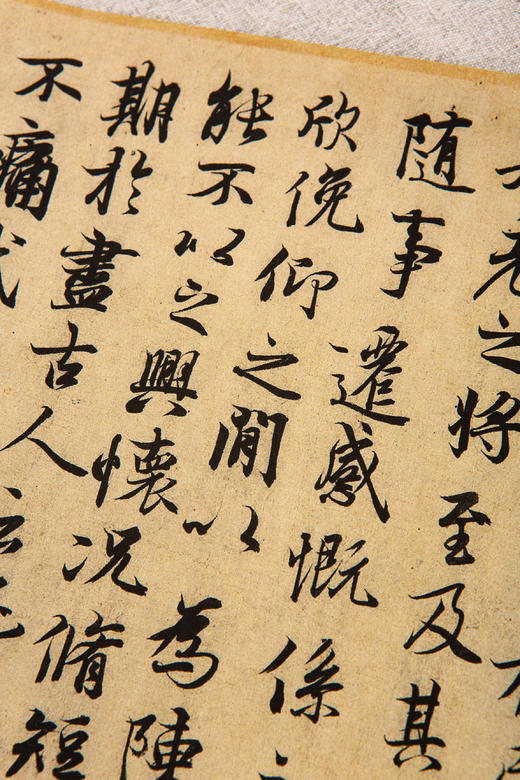 老之将至及其
随事遷感慨係
欣俛仰之閒以為陳
能不以之興懷況脩短
期於盡古人云
不痛